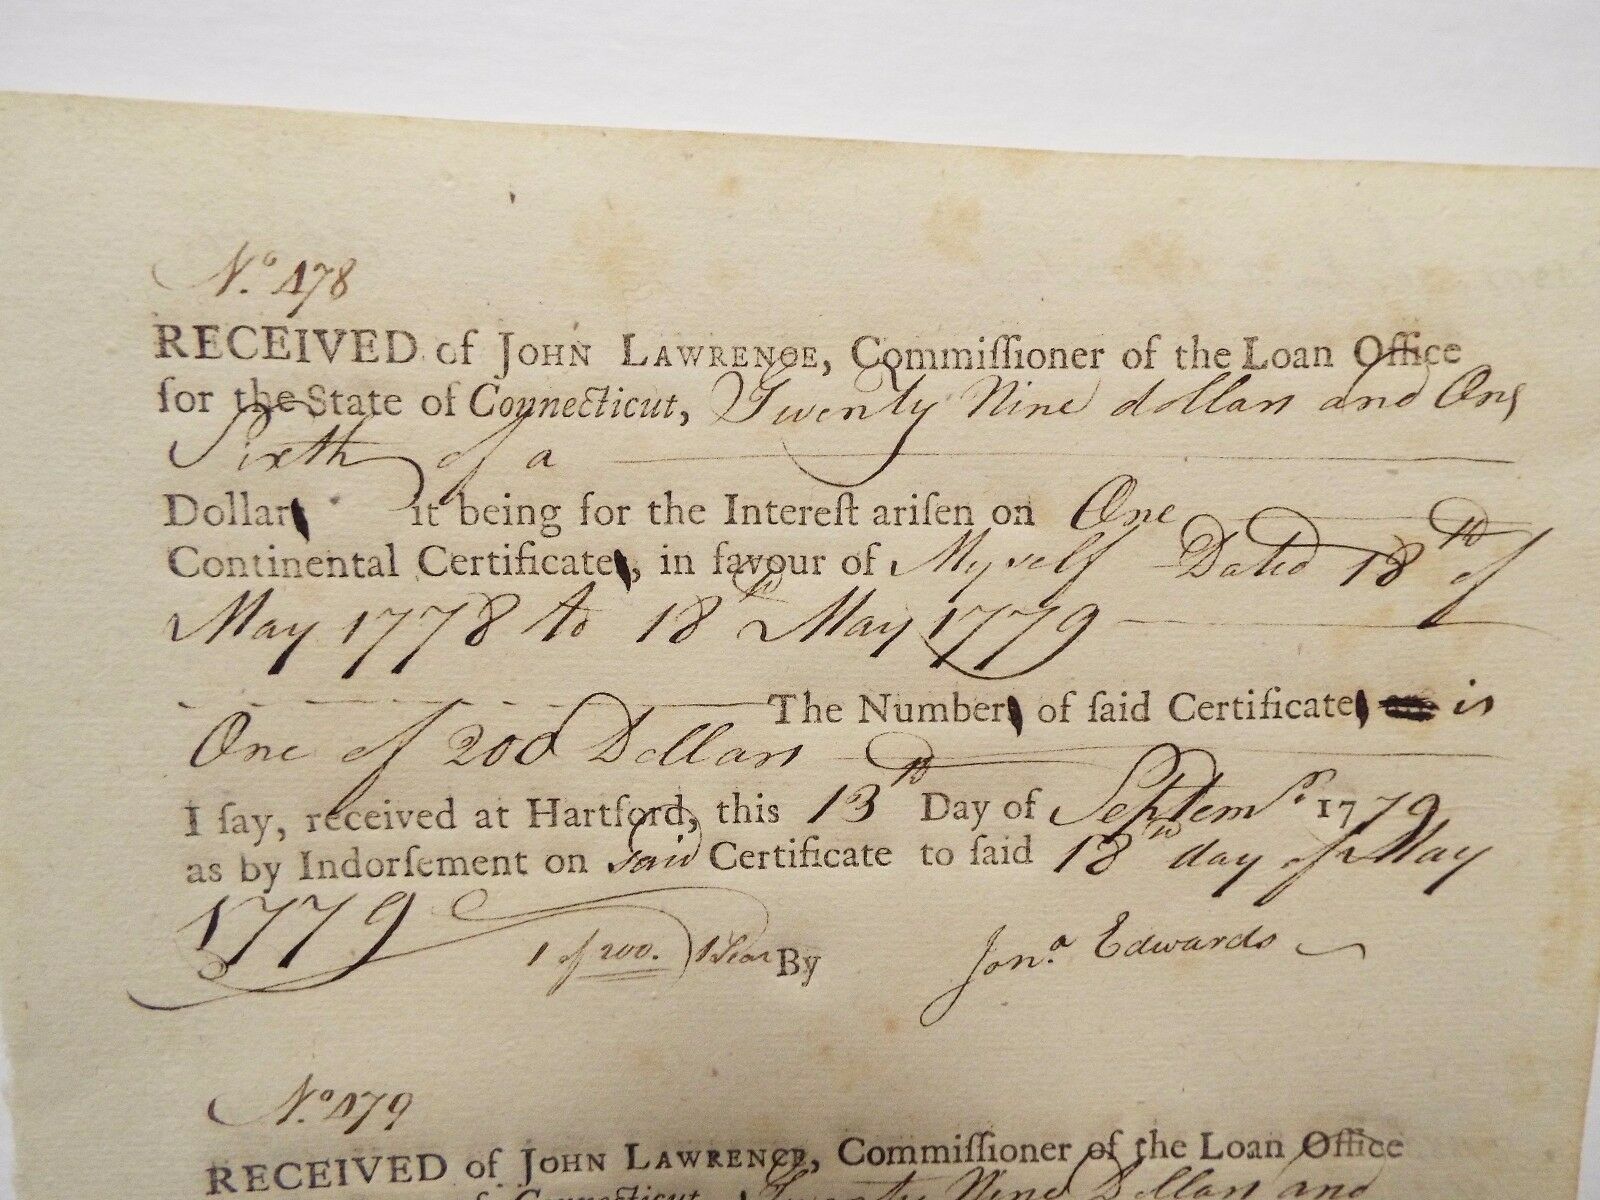 No. 478
RECEIVED of JOHN LAWRENCE, Commiſſioner of the Loan Office
for the State of Connecticut, Twenty Nine dollars and One
Sixth of a
Dollar it being for the Intereſt ariſen on One
Continental Certificate, in favour of Myself Dated 18th of
May 1778 to 18th May 1779
The Number of ſaid Certificate is
One of 200 Dollars
I ſay, received at Hartford, this 13th Day of Septemr. 1779
as by Indorſement on said Certificate to ſaid 18th day of May
1779
1 of 200. 1 Year By Jona. Edwards
No. 479
RECEIVED of JOHN LAWRENCE, Commiſſioner of the Loan Office
of Connecticut, Twenty Nine Dollars and